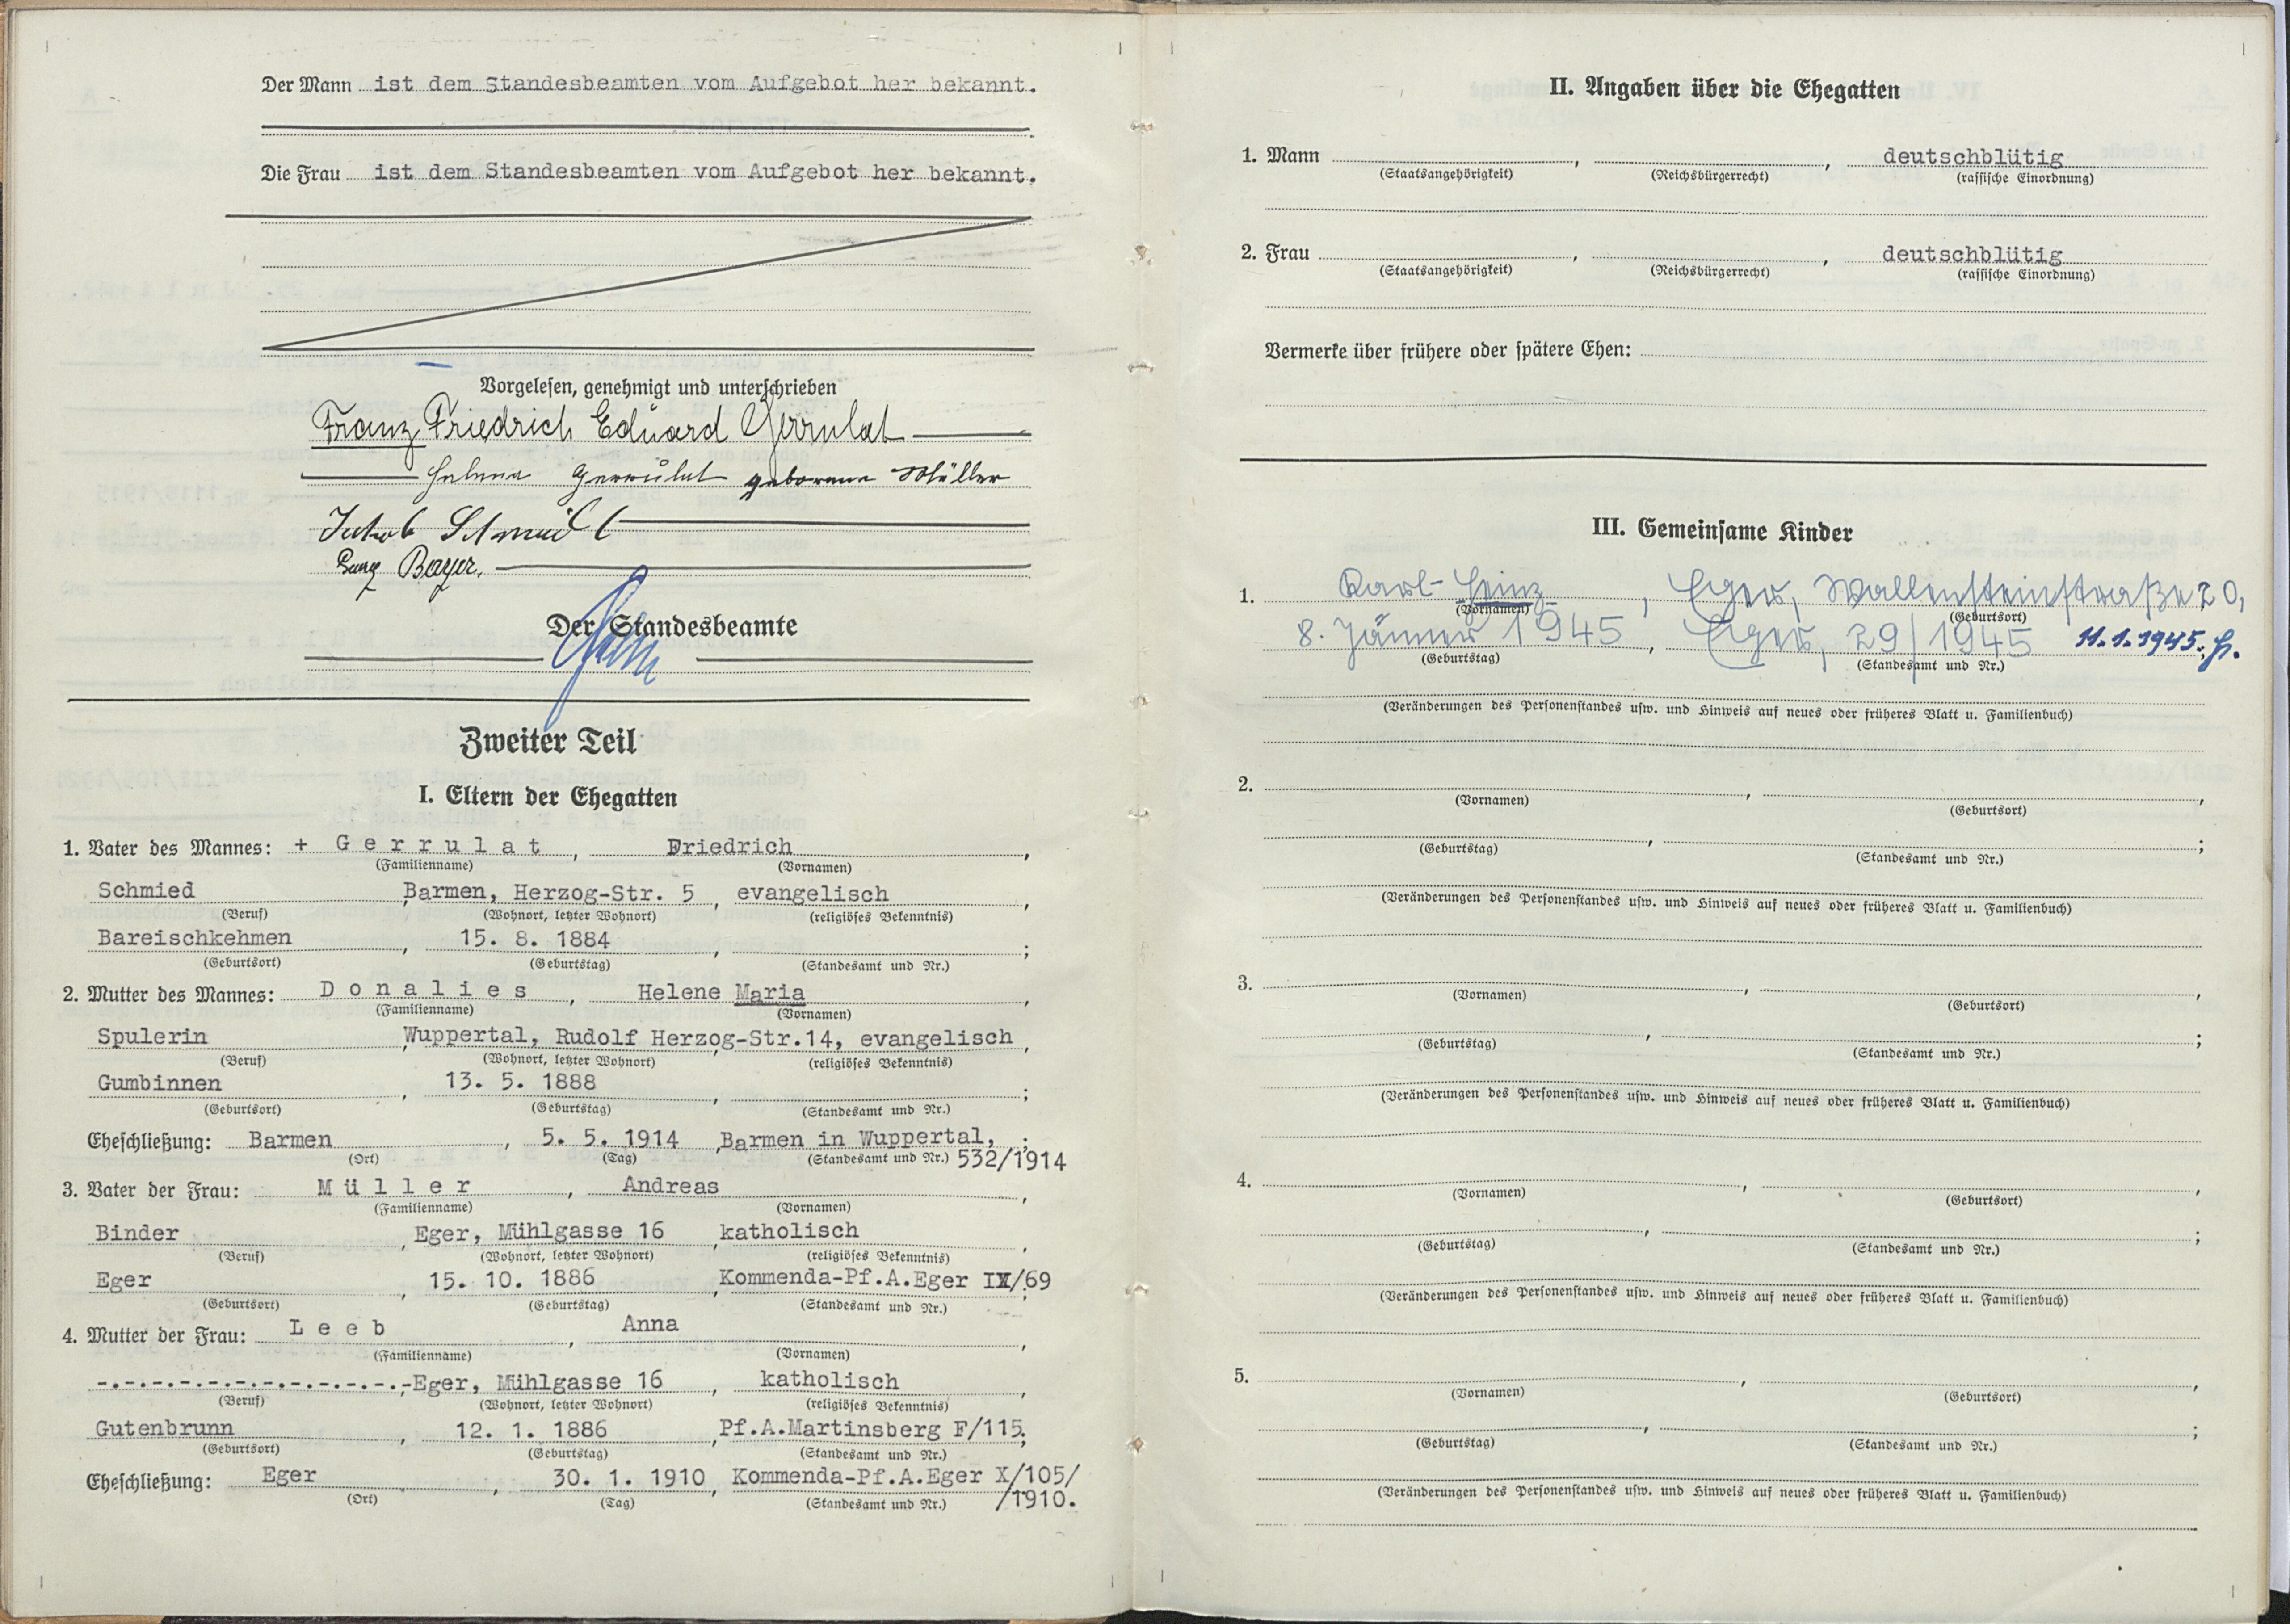 Der Mann ist dem Standesbeamten vom Aufgebot her bekannt.
Die Frau ist dem Standesbeamten vom Aufgebot her bekannt.
Vorgelesen, genehmigt und unterschrieben
Franz Friedrich Eduard Gerrulat
Helena Gerrulat geborene Müller
Jakob Schmidt
Georg Bayer.
Der Standesbeamte
Zweiter Teil
I. Eltern der Ehegatten
1. Vater des Mannes: + G e r r u l a t , Friedrich ,
(Familienname) (Vornamen)
Schmied , Barmen, Herzog-Str. 5 , evangelisch ,
(Beruf) (Wohnort, letzter Wohnort) (religiöses Bekenntnis)
Bareischkehmen , 15. 8. 1884 , ;
(Geburtsort) (Geburtstag) (Standesamt und Nr.)
2. Mutter des Mannes: D o n a l i e s , Helene Maria ,
(Familienname) (Vornamen)
Spulerin , Wuppertal, Rudolf Herzog-Str.14, evangelisch ,
(Beruf) (Wohnort, letzter Wohnort) (religiöses Bekenntnis)
Gumbinnen , 13. 5. 1888 , ;
(Geburtsort) (Geburtstag) (Standesamt und Nr.)
Eheschließung: Barmen , 5. 5. 1914 , Barmen in Wuppertal, ;
(Ort) (Tag) (Standesamt und Nr.) 532/1914
3. Vater der Frau: M ü l l e r , Andreas ,
(Familienname) (Vornamen)
Binder , Eger, Mühlgasse 16 , katholisch ,
(Beruf) (Wohnort, letzter Wohnort) (religiöses Bekenntnis)
Eger , 15. 10. 1886 , Kommenda-Pf.A.Eger IX/69 ;
(Geburtsort) (Geburtstag) (Standesamt und Nr.)
4. Mutter der Frau: L e e b , Anna ,
(Familienname) (Vornamen)
-.-.-.-.-.-.-.-.-.-.-.-Eger, Mühlgasse 16 , katholisch ,
(Beruf) (Wohnort, letzter Wohnort) (religiöses Bekenntnis)
Gutenbrunn , 12. 1. 1886 , Pf.A.Martinsberg F/115. ;
(Geburtsort) (Geburtstag) (Standesamt und Nr.)
Eheschließung: Eger , 30. 1. 1910 , Kommenda-Pf.A.Eger X/105/
(Ort) (Tag) (Standesamt und Nr.) /1910.
II. Angaben über die Ehegatten
1. Mann , , deutschblütig
(Staatsangehörigkeit) (Reichsbürgerrecht) (rassische Einordnung)
2. Frau , , deutschblütig
(Staatsangehörigkeit) (Reichsbürgerrecht) (rassische Einordnung)
Vermerke über frühere oder spätere Ehen:
III. Gemeinsame Kinder
1. Karl-Heinz , Eger, Wallensteinstraße 20,
(Vornamen) (Geburtsort)
8. Jänner 1945 , Eger, 29/1945 11.1.1945. H.
(Geburtstag) (Standesamt und Nr.)
(Veränderungen des Personenstandes usw. und Hinweis auf neues oder früheres Blatt u. Familienbuch)
2. , ,
(Vornamen) (Geburtsort)
, ;
(Geburtstag) (Standesamt und Nr.)
(Veränderungen des Personenstandes usw. und Hinweis auf neues oder früheres Blatt u. Familienbuch)
3. , ,
(Vornamen) (Geburtsort)
, ;
(Geburtstag) (Standesamt und Nr.)
(Veränderungen des Personenstandes usw. und Hinweis auf neues oder früheres Blatt u. Familienbuch)
4. , ,
(Vornamen) (Geburtsort)
, ;
(Geburtstag) (Standesamt und Nr.)
(Veränderungen des Personenstandes usw. und Hinweis auf neues oder früheres Blatt u. Familienbuch)
5. , ,
(Vornamen) (Geburtsort)
, ;
(Geburtstag) (Standesamt und Nr.)
(Veränderungen des Personenstandes usw. und Hinweis auf neues oder früheres Blatt u. Familienbuch)